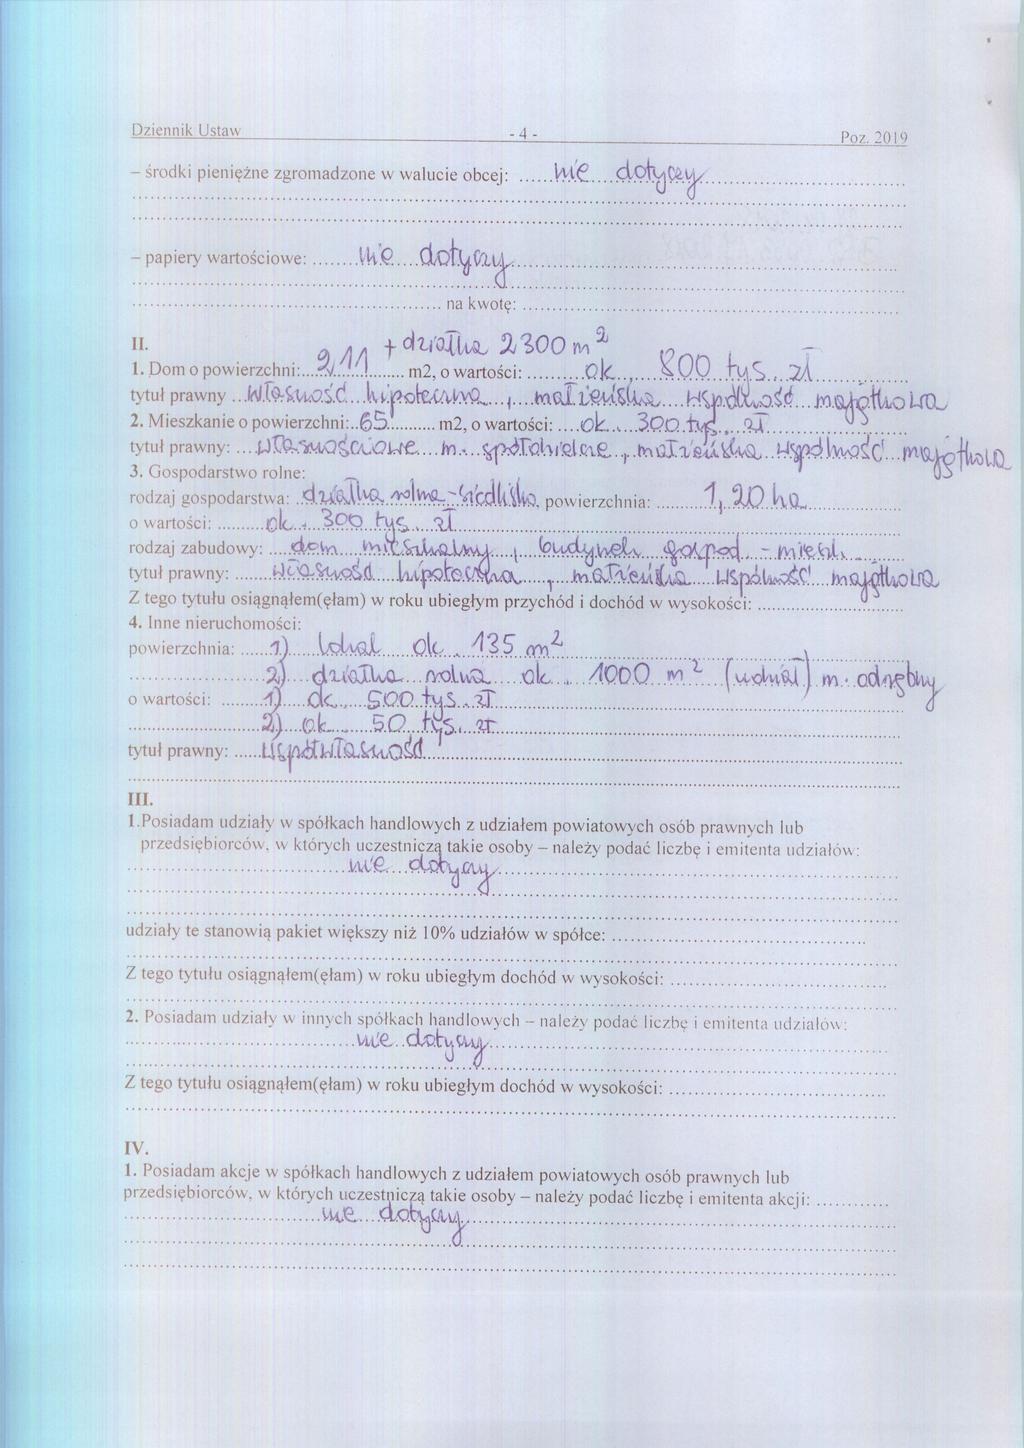 Dziennik Ustaw - 4 - Poz. 2019
– środki pieniężne zgromadzone w walucie obcej: ...... nie dotyczy ......
– papiery wartościowe: ....... nie dotyczy .......
....... na kwotę: .......
II.
+ działka 2300 m²
1. Dom o powierzchni: 211 m2, o wartości: ok. 800 tys. zł
tytuł prawny własność hipoteczna, małżeńska wspólność majątkowa
2. Mieszkanie o powierzchni: 65 m2, o wartości: ok. 300 tys. zł
tytuł prawny: własnościowe m. spółdzielcze, małżeńska wspólność majątkowa
3. Gospodarstwo rolne:
rodzaj gospodarstwa: działka rolna - siedlisko, powierzchnia: 1,20 ha
o wartości: ok. 300 tys. zł
rodzaj zabudowy: dom mieszkalny, budynek gospod. - mieszk.
tytuł prawny: własność hipoteczna, małżeńska wspólność majątkowa
Z tego tytułu osiągnąłem(ęłam) w roku ubiegłym przychód i dochód w wysokości: .......
4. Inne nieruchomości:
powierzchnia: 1) lokal ok. 135 m²
2) działka rolna ok. 1000 m² (udział) m. odrębny
o wartości: 1) ok. 500 tys. zł
2) ok. 50 tys. zł
tytuł prawny: współwłasność
III.
1.Posiadam udziały w spółkach handlowych z udziałem powiatowych osób prawnych lub
przedsiębiorców, w których uczestniczą takie osoby – należy podać liczbę i emitenta udziałów:
nie dotyczy
udziały te stanowią pakiet większy niż 10% udziałów w spółce: .......
Z tego tytułu osiągnąłem(ęłam) w roku ubiegłym dochód w wysokości: .......
2. Posiadam udziały w innych spółkach handlowych – należy podać liczbę i emitenta udziałów:
nie dotyczy
Z tego tytułu osiągnąłem(ęłam) w roku ubiegłym dochód w wysokości: .......
IV.
1. Posiadam akcje w spółkach handlowych z udziałem powiatowych osób prawnych lub
przedsiębiorców, w których uczestniczą takie osoby – należy podać liczbę i emitenta akcji: .......
nie dotyczy